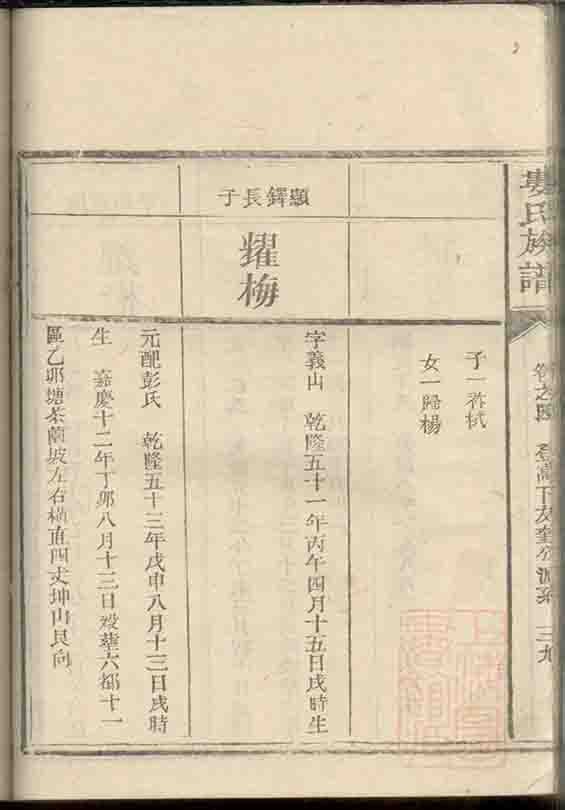 婁氏族譜
卷之四 登高下友奎公派系 三九
子一祚栻
女一歸楊
顯鐸長子
耀梅
字義山 乾隆五十一年丙午四月十五日戌時生
元配彭氏 乾隆五十三年戊申八月十三日戌時
生 嘉慶十二年丁卯八月十三日歿葬六都十一
區乙耶塘茶蘭坡左右橫直四丈坤山艮向